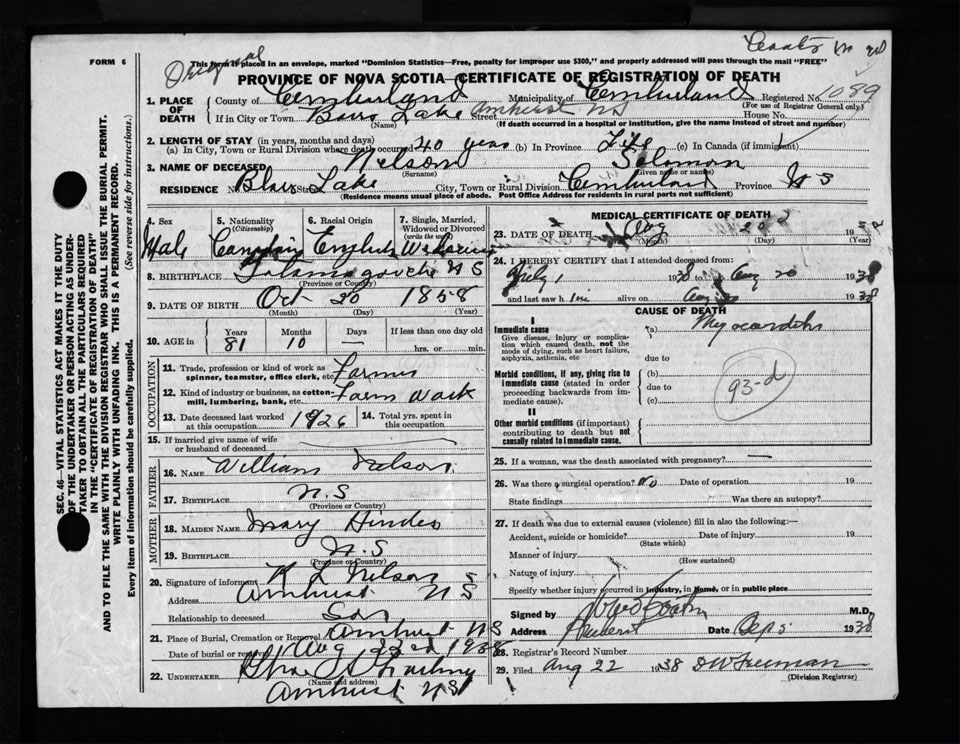 FORM 6
Original
This form if placed in an envelope, marked "Dominion Statistics—Free, penalty for improper use $300," and properly addressed will pass through the mail "FREE"
PROVINCE OF NOVA SCOTIA—CERTIFICATE OF REGISTRATION OF DEATH
1. PLACE OF DEATH
County of Cumberland Municipality of Cumberland Registered No. 1089
(For use of Registrar General only)
If in City or Town Blairs Lake Street Amherst NS House No.
(Name) (If death occurred in a hospital or institution, give the name instead of street and number)
2. LENGTH OF STAY (in years, months and days)
(a) In City, Town or Rural Division where death occurred 40 years (b) In Province Life (c) In Canada (if immigrant)
3. NAME OF DECEASED Nelson Soloman
(Surname) (Given name or names)
RESIDENCE No. Blair Lake City, Town or Rural Division Cumberland Province N S
(Residence means usual place of abode. Post Office Address for residents in rural parts not sufficient)
4. Sex
Male
5. Nationality (Citizenship)
Canadian
6. Racial Origin
English
7. Single, Married, Widowed or Divorced (write the word)
8. BIRTHPLACE Tatamagouche N S
(Province or Country)
9. DATE OF BIRTH Oct 20 1858
(Month) (Day) (Year)
10. AGE in Years Months Days If less than one day old
81 10 — hrs. or min.
OCCUPATION
11. Trade, profession or kind of work as spinner, teamster, office clerk, etc. Farmer
12. Kind of industry or business, as cotton-mill, lumbering, bank, etc. Farm Work
13. Date deceased last worked at this occupation 1926
14. Total yrs. spent in this occupation
15. If married give name of wife or husband of deceased
FATHER
16. NAME William Nelson
17. BIRTHPLACE N.S
(Province or Country)
MOTHER
18. MAIDEN NAME Mary Hindes
19. BIRTHPLACE N.S
(Province or Country)
20. Signature of informant R L Nelson
Address Amherst N S
Relationship to deceased Son
21. Place of Burial, Cremation or Removal Amherst N S
Date of burial or removal Aug 22nd 1938
22. UNDERTAKER
(Name and address)
Amherst N S
MEDICAL CERTIFICATE OF DEATH
23. DATE OF DEATH Aug 20 19
(Month) (Day) (Year)
24. I HEREBY CERTIFY that I attended deceased from:
July 1 1938 to Aug 20 1938
and last saw him alive on Aug 1938
CAUSE OF DEATH
I
Immediate cause
Give disease, injury or complication which caused death, not the mode of dying, such as heart failure, asphyxia, asthenia, etc
(a) Myocarditis
due to
Morbid conditions, if any, giving rise to immediate cause (stated in order proceeding backwards from immediate cause).
(b)
due to
(c)
93-d
II
Other morbid conditions (if important) contributing to death but not causally related to immediate cause.
25. If a woman, was the death associated with pregnancy? —
26. Was there a surgical operation? No Date of operation 19
State findings Was there an autopsy?
27. If death was due to external causes (violence) fill in also the following:—
Accident, suicide or homicide? Date of injury 19
(State which)
Manner of injury
(How sustained)
Nature of injury
Specify whether injury occurred in Industry, in Home, or in public place
Signed by M.D.
Address Amherst Date Sep 5 1938
28. Registrar's Record Number
29. Filed Aug 22 1938 D W Freeman
(Division Registrar)
SEC. 46—VITAL STATISTICS ACT MAKES IT THE DUTY OF THE UNDERTAKER OR PERSON ACTING AS UNDERTAKER TO OBTAIN ALL THE PARTICULARS REQUIRED IN THE "CERTIFICATE OF REGISTRATION OF DEATH" AND TO FILE THE SAME WITH THE DIVISION REGISTRAR WHO SHALL ISSUE THE BURIAL PERMIT.
WRITE PLAINLY WITH UNFADING INK. THIS IS A PERMANENT RECORD.
Every item of information should be carefully supplied. (See reverse side for instructions.)